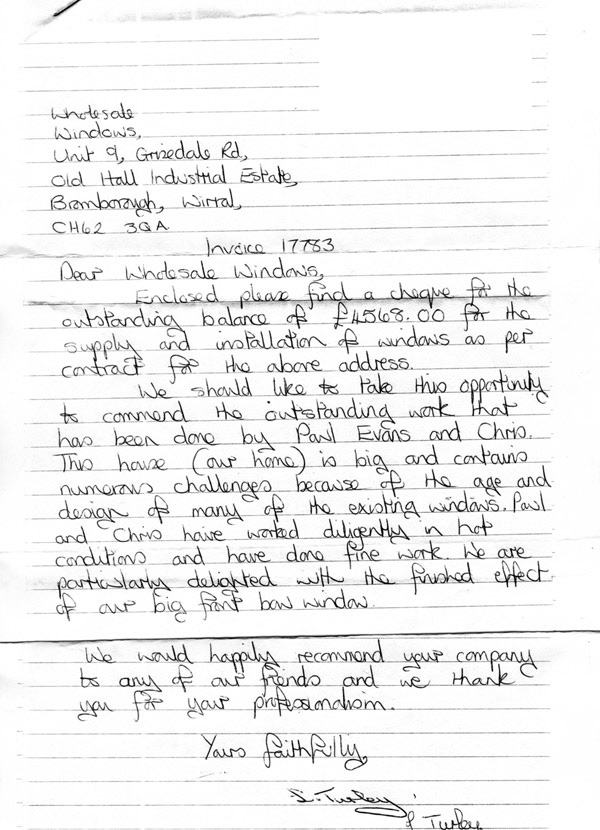 Wholesale
Windows,
Unit 9, Grizedale Rd,
Old Hall Industrial Estate,
Bromborough, Wirral,
CH62 3QA
Invoice 17783
Dear Wholesale Windows,
Enclosed please find a cheque for the
outstanding balance of £4568.00 for the
supply and installation of windows as per
contract for the above address.
We should like to take this opportunity
to commend the outstanding work that
has been done by Paul Evans and Chris.
This house (our home) is big and contains
numerous challenges because of the age and
design of many of the existing windows. Paul
and Chris have worked diligently in hot
conditions and have done fine work. We are
particularly delighted with the finished effect
of our big front bow window.
We would happily recommend your company
to any of our friends and we thank
you for your professionalism.
Yours faithfully,
S. Turley
S Turley